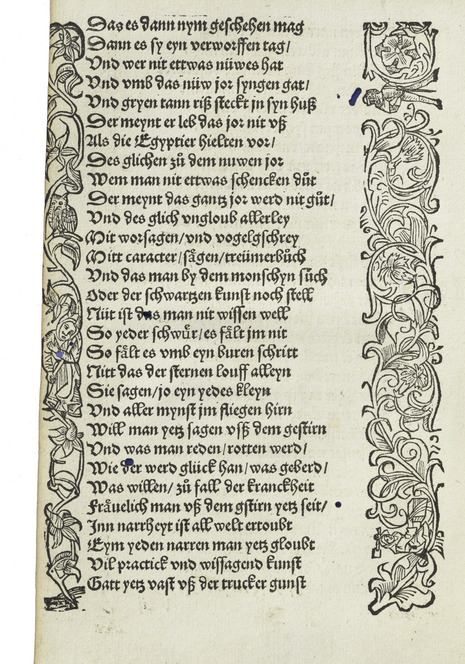 Das es dann nym geschehen mag
Dann es sy eyn verworffen tag/
Vnd wer nit ettwas nüwes hat
Vnd vmb das nüw jor syngen gat/
Vnd gryen tann riß steckt jn syn huß
Der meynt er leb das jor nit vß
Als die Egyptier hielten vor/
Des glichen zů dem nuwen jor
Wem man nit ettwas schencken důt
Der meynt das gantz jor werd nit gůt/
Vnd des glich vngloub allerley
Mit worsagen/vnd vogelgschrey
Mitt caracter/sågen/treümerbůch
Vnd das man by dem monschyn sůch
Oder der schwartzen kunst noch stell
Nüt ist das man nit wissen well
So yeder schwůr/es fålt jm nit
So fålt es vmb eyn buren schritt
Nitt das der sternen louff alleyn
Sie sagen/jo eyn yedes kleyn
Vnd aller mynst jm fliegen hirn
Will man yetz sagen vß dem gestirn
Vnd was man reden/rotten werd/
Wie der werd glück han/was geberd/
Was willen/zů fall der kranckheit
Fråuelich man vß dem gstirn yetz seit/
Jnn narrheyt ist all welt ertoubt
Eym yeden narren man yetz gloubt
Vil practick vnd wissagend kunst
Gatt yetz vast vß der trucker gunst